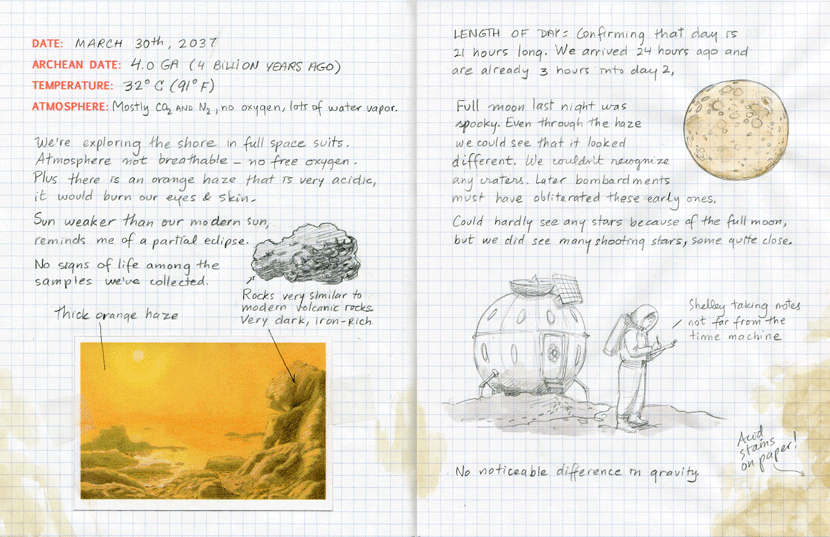 DATE: MARCH 30th, 2037
ARCHEAN DATE: 4.0 GA (4 BILLION YEARS AGO)
TEMPERATURE: 32° C (91° F)
ATMOSPHERE: Mostly CO2 AND N2, no oxygen, lots of water vapor.
We're exploring the shore in full space suits.
Atmosphere not breathable – no free oxygen.
Plus there is an orange haze that is very acidic,
it would burn our eyes & skin.
Sun weaker than our modern sun,
reminds me of a partial eclipse.
No signs of life among the
samples we've collected.
Rocks very similar to
modern volcanic rocks.
Very dark, iron-rich
Thick orange haze
LENGTH OF DAY: Confirming that day is
21 hours long. We arrived 24 hours ago and
are already 3 hours into day 2,
Full moon last night was
spooky. Even through the haze
we could see that it looked
different. We couldn't recognize
any craters. Later bombardments
must have obliterated these early ones.
Could hardly see any stars because of the full moon,
but we did see many shooting stars, some quite close.
Shelley taking notes
not far from the
time machine
Acid
stains
on paper!
No noticeable difference in gravity.